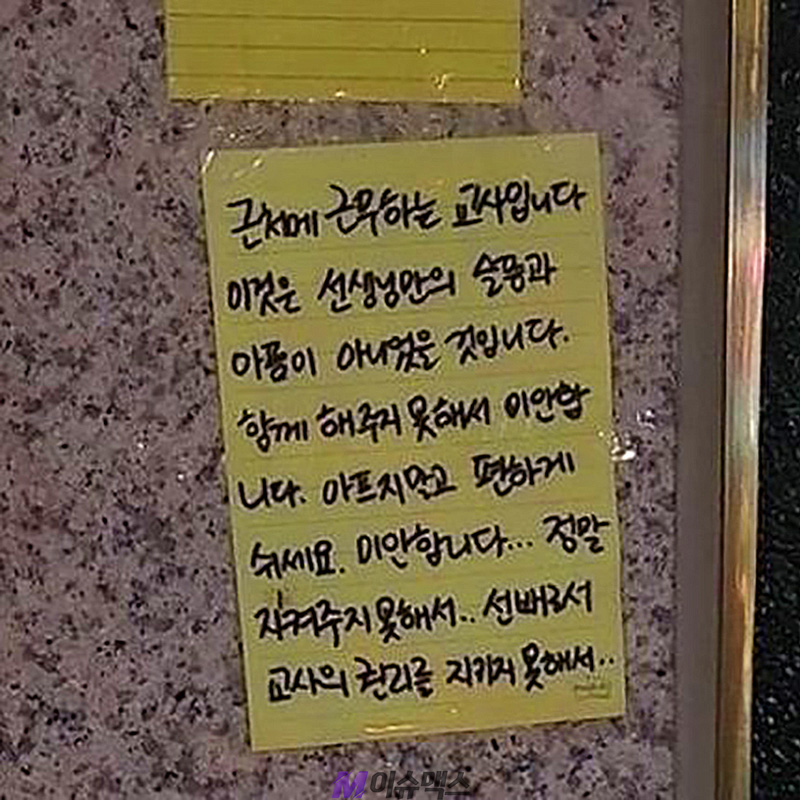 근처에 근무하는 교사입니다
이것은 선생님만의 슬픔과
아픔이 아니었을 것입니다.
함께 해주지 못해서 미안합
니다. 아프지말고 편하게
쉬세요. 미안합니다... 정말
지켜주지 못해서.. 선배로서
교사의 권리를 지키지 못해서..
M이슈맥스